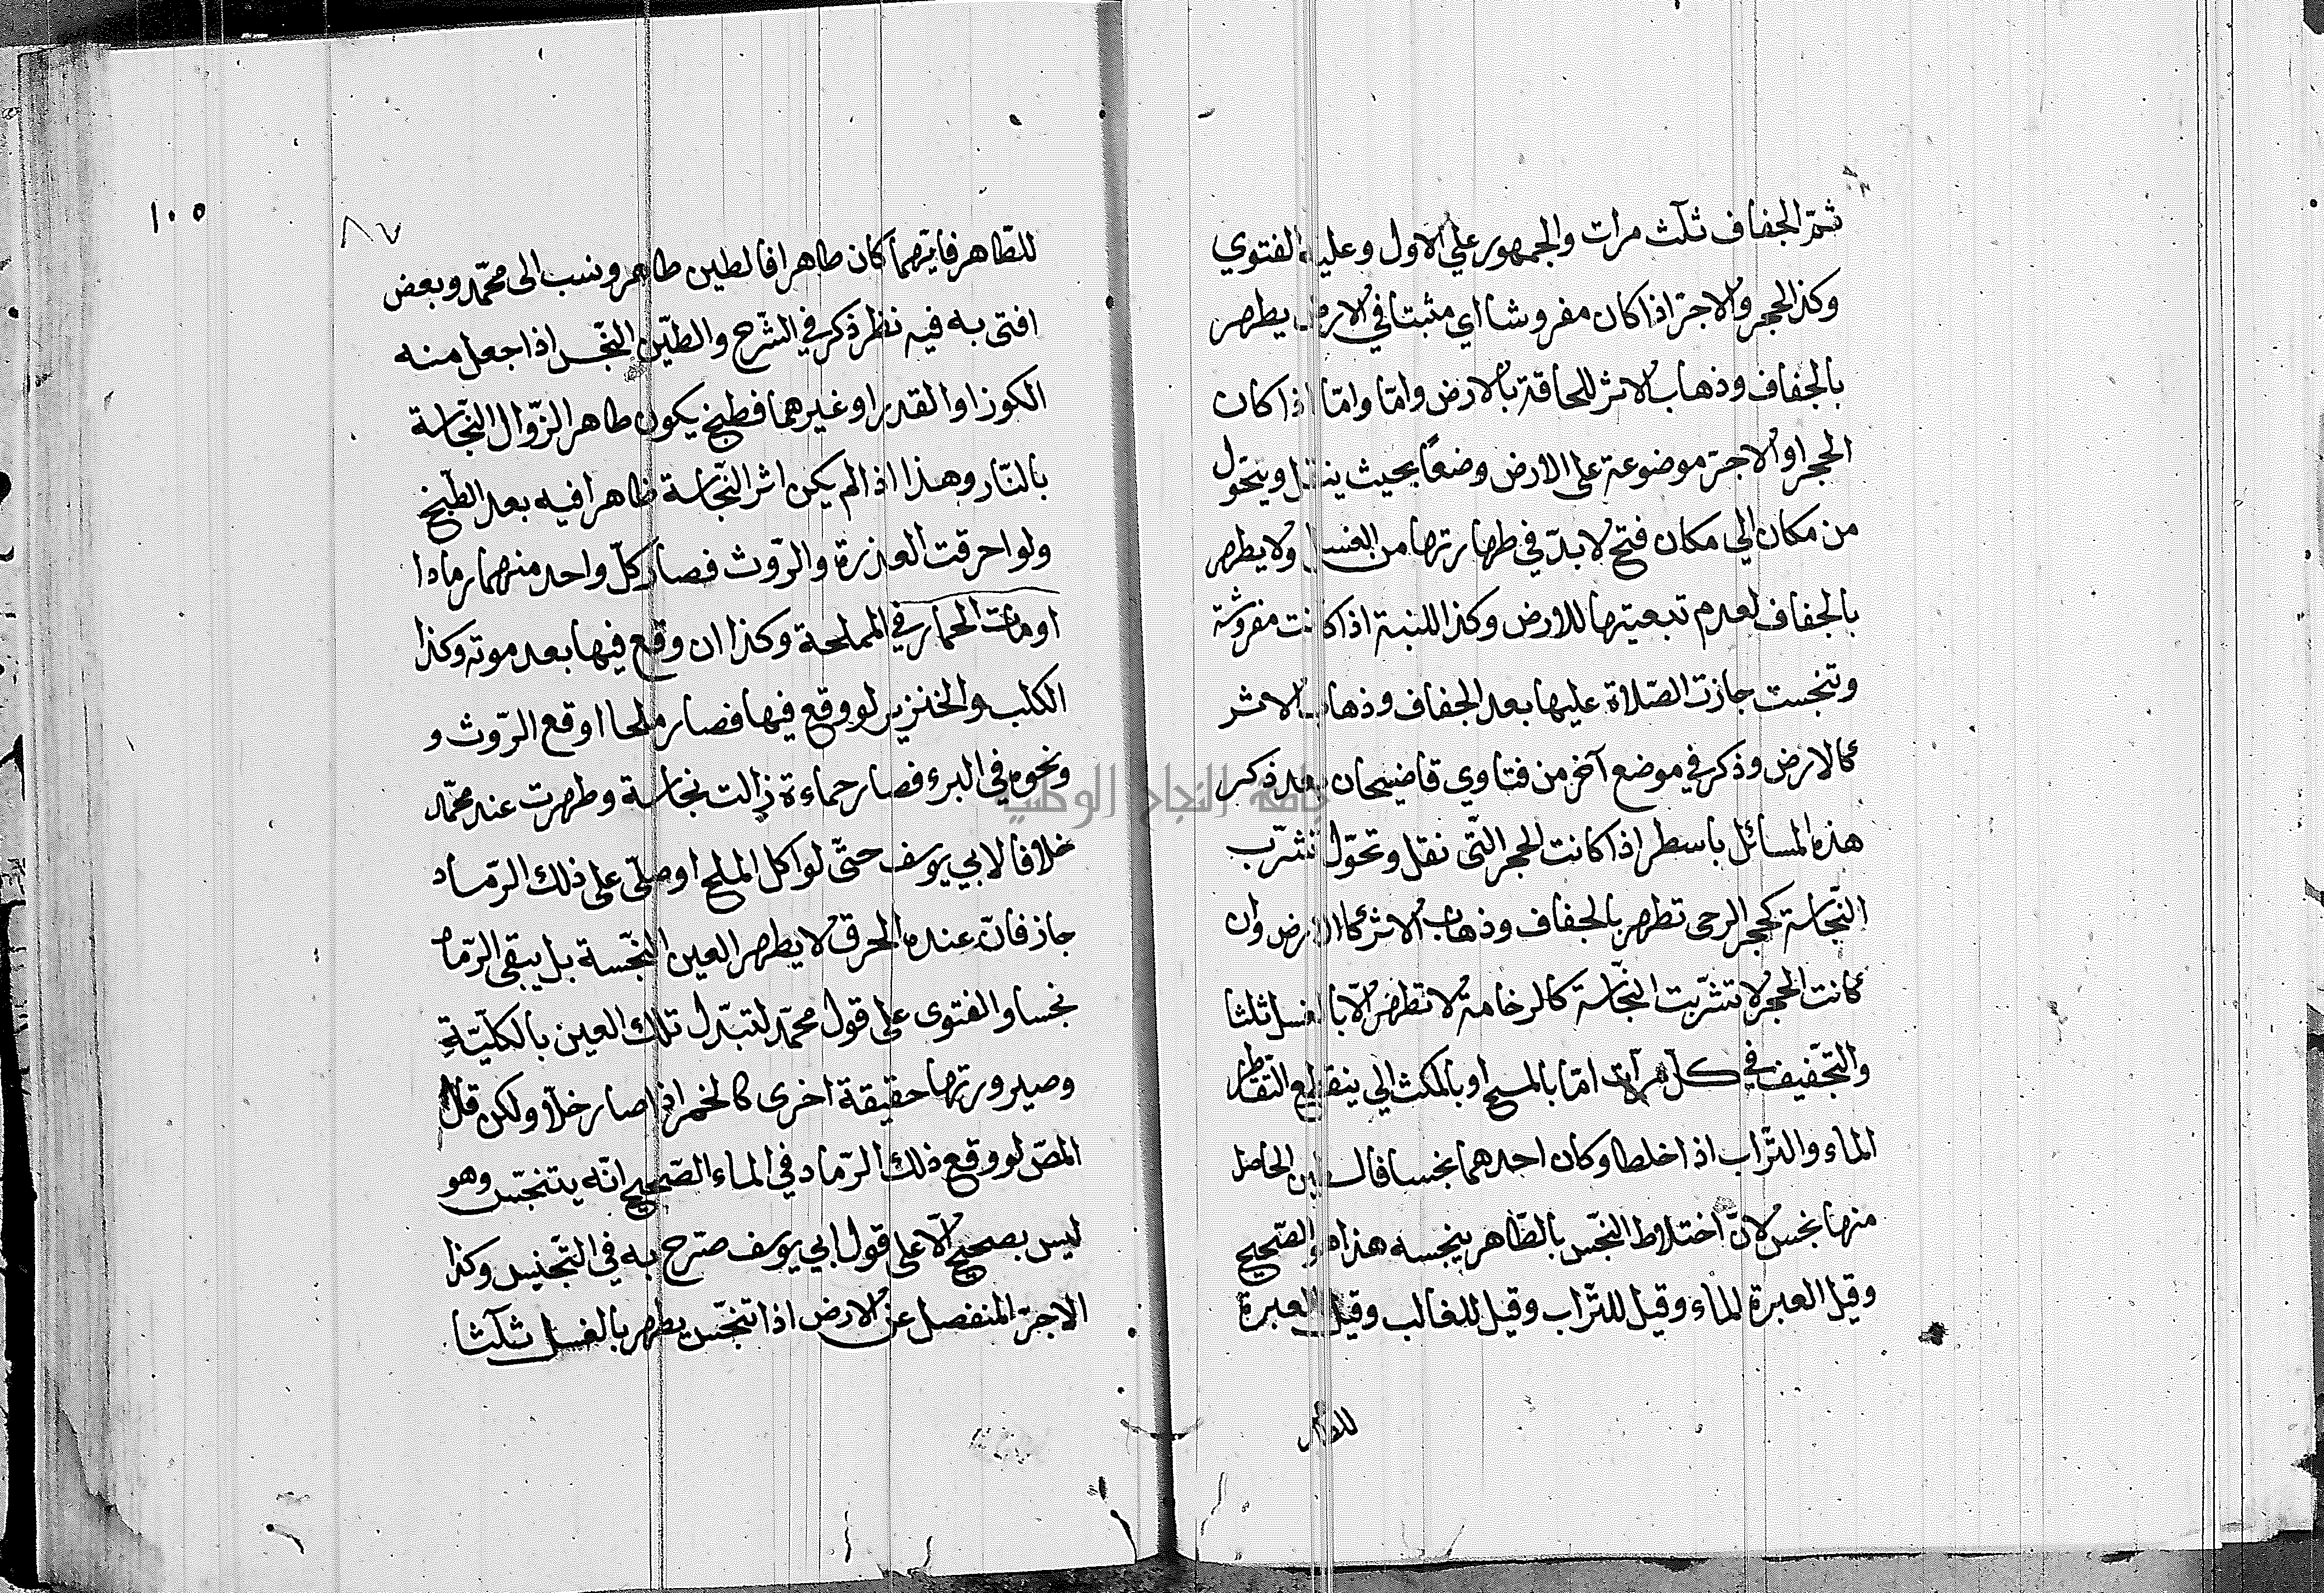 ثمّ الجفاف ثلٰث مرات والجمهور علي الاول وعليه الفتوي
وكذا الحجر والاجرّ اذا كان مفروشا اي مثبتا في الارض يطهر
بالجفاف وذهاب الاثر للحاقة بالارض وامّا وامّا اذا كان
الحجر او الاجرّ موضوعة على الارض وضعاً بحيث ينقل ويتحّول
من مكان الي مكان فتح لا بدّ في طهارتها من الغسل ولا يطهر
بالجفاف لعدم تبعيّتها للارض وكذا اللبنة اذا كانت مفروشة
وتنجست جازت الصّلاة عليها بعد الجفاف وذهاب الاثر
كالارض وذكر في موضع آخر من فتاوي قاضيحان بعد ذكر
هذه المسائل باسطر اذا كانت الحجر التّى نقل وتحوّل تشرّب
النّجاسة كحجر الرحى تطهر بالجفاف وذهاب الاثر كالارض وان
كانت الحجر لا تتشرّبت النّجاسة كالرخامة لا تطهر الّا بالغسل ثلثا
والتّجفيف في كلّ مرّات امّا بالمسح او بالمكث الي ينقطع التقاطر
الماء والتّراب اذا خلطا وكان احدهما نجسا فالطين الحاصل
منها نجس لانّ اختلاط النّجس بالطّاهر ينجسه هذا هو الصّحيح
وقيل العبرة للماء وقيل للتّراب وقيل للغالب وقيل العبرة
للطاهر
١٠٥
٨٧
للطّاهر فايّهما كان طاهرا فالطين طاهر ونسب الى محمّد وبعض
افتى به فيه نظر ذكر في الشّرح والطّين النّجس اذا جعل منه
الكوز او القدر او غيرهما فطبخ يكون طاهر الزّوال النّجاسة
بالنّار وهذا اذا لم يكن اثر النّجاسة ظاهرا فيه بعد الطّبخ
ولو احرقت العذرة والرّوث فصار كلّ واحد منهما رمادا
او مات الحمار في المملحة وكذا ان وقع فيها بعد موته وكذا
الكلب والخنزير لو وقع فيها فصار ملحا او قع الرّوث و
ونحوه في البرء فصار حماءة زالت نجاسة وطهرت عند محمّد
خلافا لابي يوسف حتّى لو اكل الملح او صلّى على ذلك الرّماد
جاز فانّ عنده الحرق لا يطهر العين النّجسة بل يبقى الرّماد
نجسا والفتوى على قول محمّد لتبدّل تلك العين بالكلّيّة
وصيرورتها حقيقة اخرى كالخمر اذا صار خلّا ولكن قال
المصّ لو وقع ذلك الرّماد في الماء الصّحيح انّه يتنجّس وهو
ليس بصحيح الّا على قول ابي يوسف صرّح به في التّجنيس وكذا
الاجرّ المنفصل عن الارض اذا تنجّس يطهر بالغسل ثلٰثا
جامعة النجاح الوطنية